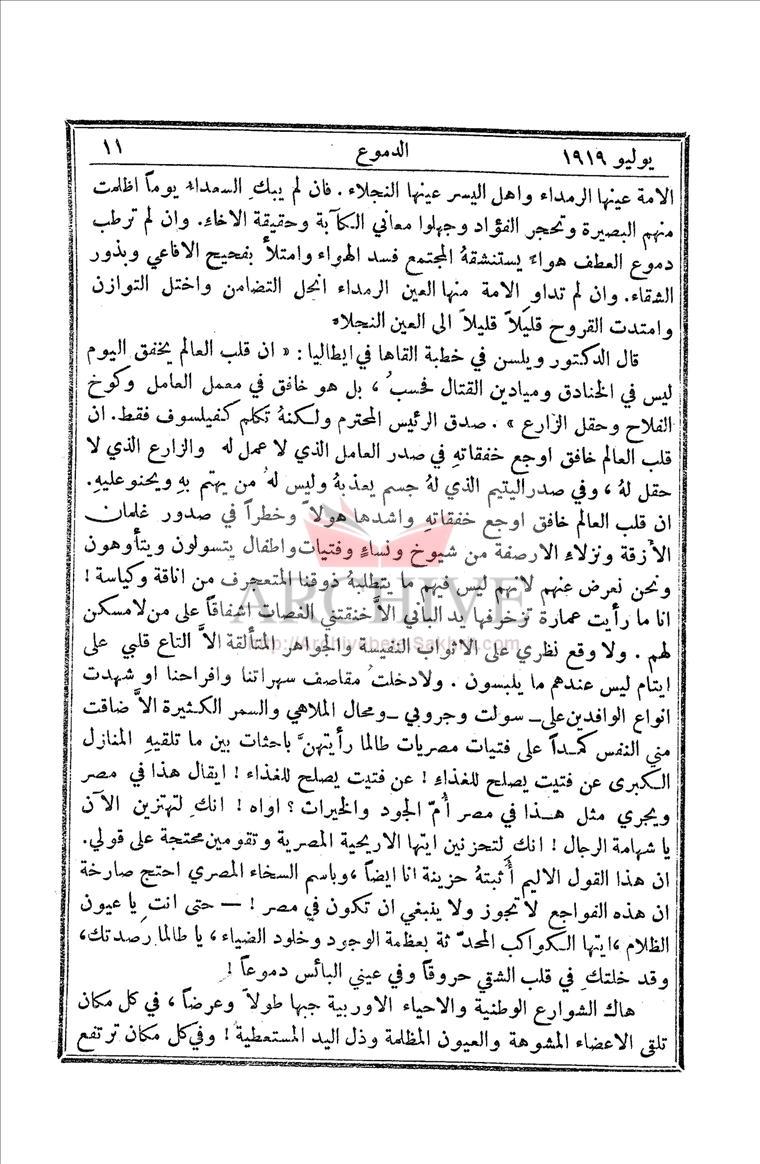 يوليو ١٩١٩ الدموع ١١
الامة عينها الرمداء واهل اليسر عينها النجلاء . فان لم يبكِ السعداء يوماً اظلمت
منهم البصيرة وتحجر الفؤاد وجهلوا معاني الكآبة وحقيقة الاخاء. وان لم ترطب
دموع العطف هواءً يستنشقهُ المجتمع فسد الهواء وامتلأ بفحيح الافاعي وبذور
الشقاء. وان لم تداوِ الامة منها العين الرمداء انحل التضامن واختل التوازن
وامتدت القروح قليلاً قليلاً الى العين النجلاء
قال الدكتور ويلسن في خطبة القاها في ايطاليا : « ان قلب العالم يخفق اليوم
ليس في الخنادق وميادين القتال فحسبُ ، بل هو خافق في معمل العامل وكوخ
الفلاح وحقل الزارع » . صدق الرئيس المحترم ولكنهُ تكلم كفيلسوف فقط. ان
قلب العالم خافق اوجع خفقاتهِ في صدر العامل الذي لا عمل له والزارع الذي لا
حقل لهُ ، وفي صدر اليتيم الذي لهُ جسم يعذبهُ وليس لهُ من يهتم بهِ ويحنو عليهِ.
ان قلب العالم خافق اوجع خفقاتهِ واشدها هولاً وخطراً في صدور غلمان
الأزقة ونزلاء الارصفة من شيوخ ونساءٍ وفتيات واطفال يتسولون ويتأوهون
ونحن نعرض عنهم لانهم ليس فيهم ما يتطلبهُ ذوقنا المتعجرف من اناقة وكياسة !
انا ما رأيت عمارة تزخرفها يد الباني الاَّ خنقتني الغصات اشفاقاً على من لا مسكن
لهم . ولا وقع نظري على الاثواب النفيسة والجواهر المتألقة الاَّ التاع قلبي على
ايتام ليس عندهم ما يلبسون . ولا دخلتُ مقاصف سهراتنا وافراحنا او شهدت
انواع الوافدين على ــ سولت وجروبي ــ ومحال الملاهي والسمر الكثيرة الاَّ ضاقت
مني النفس كمداً على فتيات مصريات طالما رأيتهنَّ باحثات بين ما تلقيهِ المنازل
الكبرى عن فتيت يصلح للغذاءِ ! عن فتيت يصلح للغذاء ! ايقال هذا في مصر
ويجري مثل هذا في مصر أُمّ الجود والخيرات ؟ اواه ! انكِ لتهتزين الآن
يا شهامة الرجال ! انكِ لتحزنين ايتها الاريحية المصرية وتقومين محتجة على قولي.
ان هذا القول الاليم أُثبتهُ حزينة انا ايضاً ، وباسم السخاء المصري احتج صارخة
ان هذه الفواجع لا تجوز ولا ينبغي ان تكون في مصر ! — حتى انتِ يا عيون
الظلام ، ايتها الكواكب المحدّثة بعظمة الوجود وخلود الضياء ، يا طالما رصدتك،
وقد خلتكِ في قلب الشقي حروقاً وفي عيني البائس دموعاً !
هاك الشوارع الوطنية والاحياء الاوربية جبها طولاً وعرضاً ، في كل مكان
تلقى الاعضاء المشوهة والعيون المظلمة وذل اليد المستعطية ! وفي كل مكان ترتفع
ARCHIVE
http://Archivebeta.Sakhrit.com